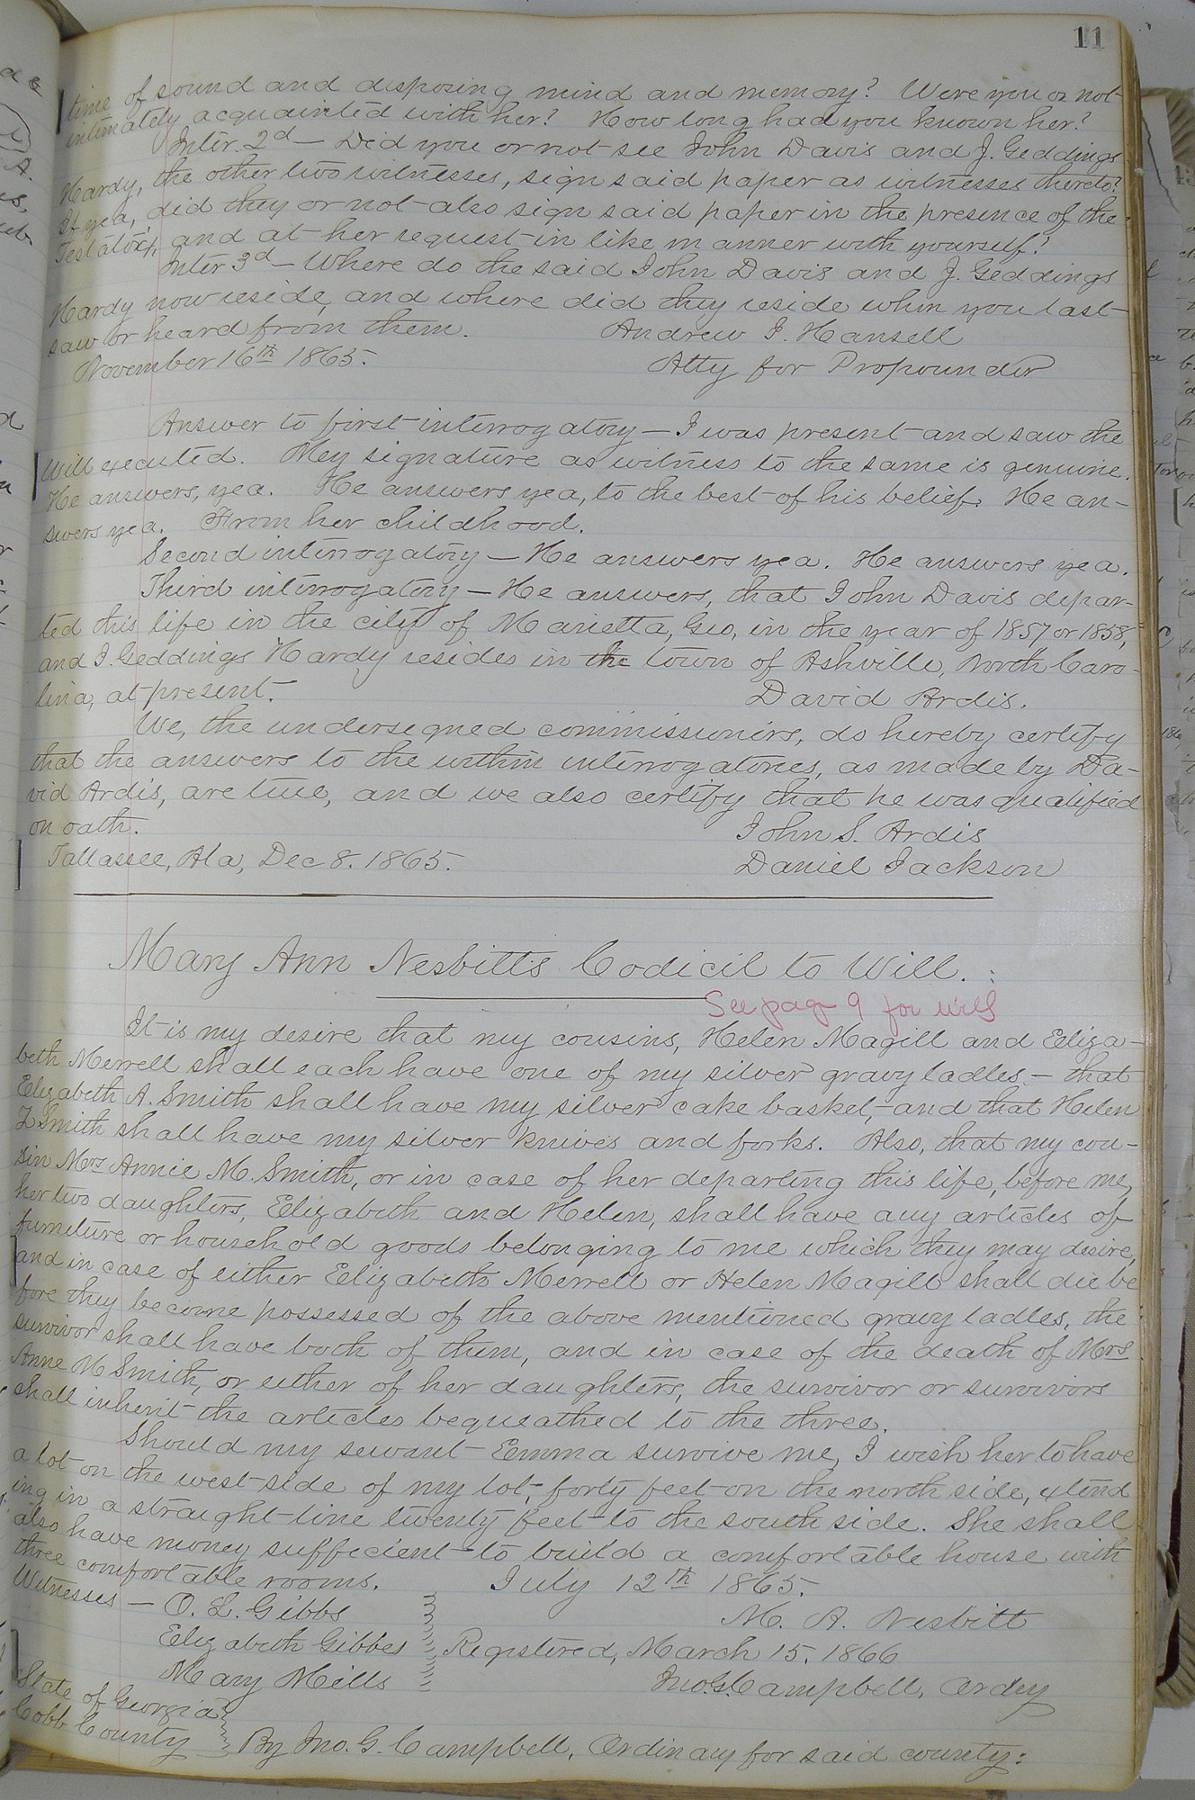 11
time of sound and disposing mind and memory? Were you or not
intimately acquainted with her? How long had you known her?
Inter. 2d – Did you or not see John Davis and J. Geddings
Hardy, the other two witnesses, sign said paper as witnesses thereto?
If yea, did they or not also sign said paper in the presence of the
Testatrix, and at her request in like manner with yourself?
Inter 3d – Where do the said John Davis and J. Geddings
Hardy now reside, and where did they reside when you last
saw or heard from them. Andrew J. Hansell
November 16th 1865. Atty for Propounder
Answer to first interrogatory – I was present and saw the
Will executed. My signature as witness to the same is genuine.
He answers, yea. He answers yea, to the best of his belief. He an-
swers yea. From her childhood.
Second interrogatory – He answers yea. He answers yea.
Third interrogatory – He answers, that John Davis depar-
ted this life in the city of Marietta, Geo, in the year of 1857 or 1858,
and J. Geddings Hardy resides in the town of Ashville, North Caro-
lina, at present. David Ardis.
We, the undersegned commissioners, do hereby certify
that the answers to the within interrogatories, as made by Da-
vid Ardis, are true, and we also certify that he was qualified
on oath. John S. Ardis
Tallassee, Ala, Dec 8. 1865. Daniel Jackson
Mary Ann Nesbitt's Codicil to Will.
See page 9 for will
It is my desire that my cousins, Helen Magill and Eliza-
beth Merrell shall each have one of my silver gravy ladles – that
Elizabeth A. Smith shall have my silver cake basket, – and that Helen
Z Smith shall have my silver knives and forks. Also, that my cou-
sin Mrs Annie M. Smith, or in case of her departing this life, before me,
her two daughters, Elizabeth and Helen, shall have any articles of
furniture or household goods belonging to me which they may desire,
and in case of either Elizabeth Merrell or Helen Magill shall die be
fore they become possessed of the above mentioned gravy ladles, the
survivor shall have both of them, and in case of the death of Mrs
Anne M Smith, or either of her daughters, the survivor or survivors
shall inherit the articles bequeathed to the three.
Should my servant Emma survive me, I wish her to have
a lot on the west side of my lot, forty feet on the north side, extend
ing in a straight line twenty feet to the south side. She shall
also have money sufficient to build a comfortable house with
three comfortable rooms. July 12th 1865.
Witnesses – O. L. Gibbs M. A. Nesbitt
Elizabeth Gibbes Registered, March 15. 1866
Mary Mills Jno. G. Campbell, Ordy
State of Georgia
Cobb County By Jno. G. Campbell, Ordinary for said county: